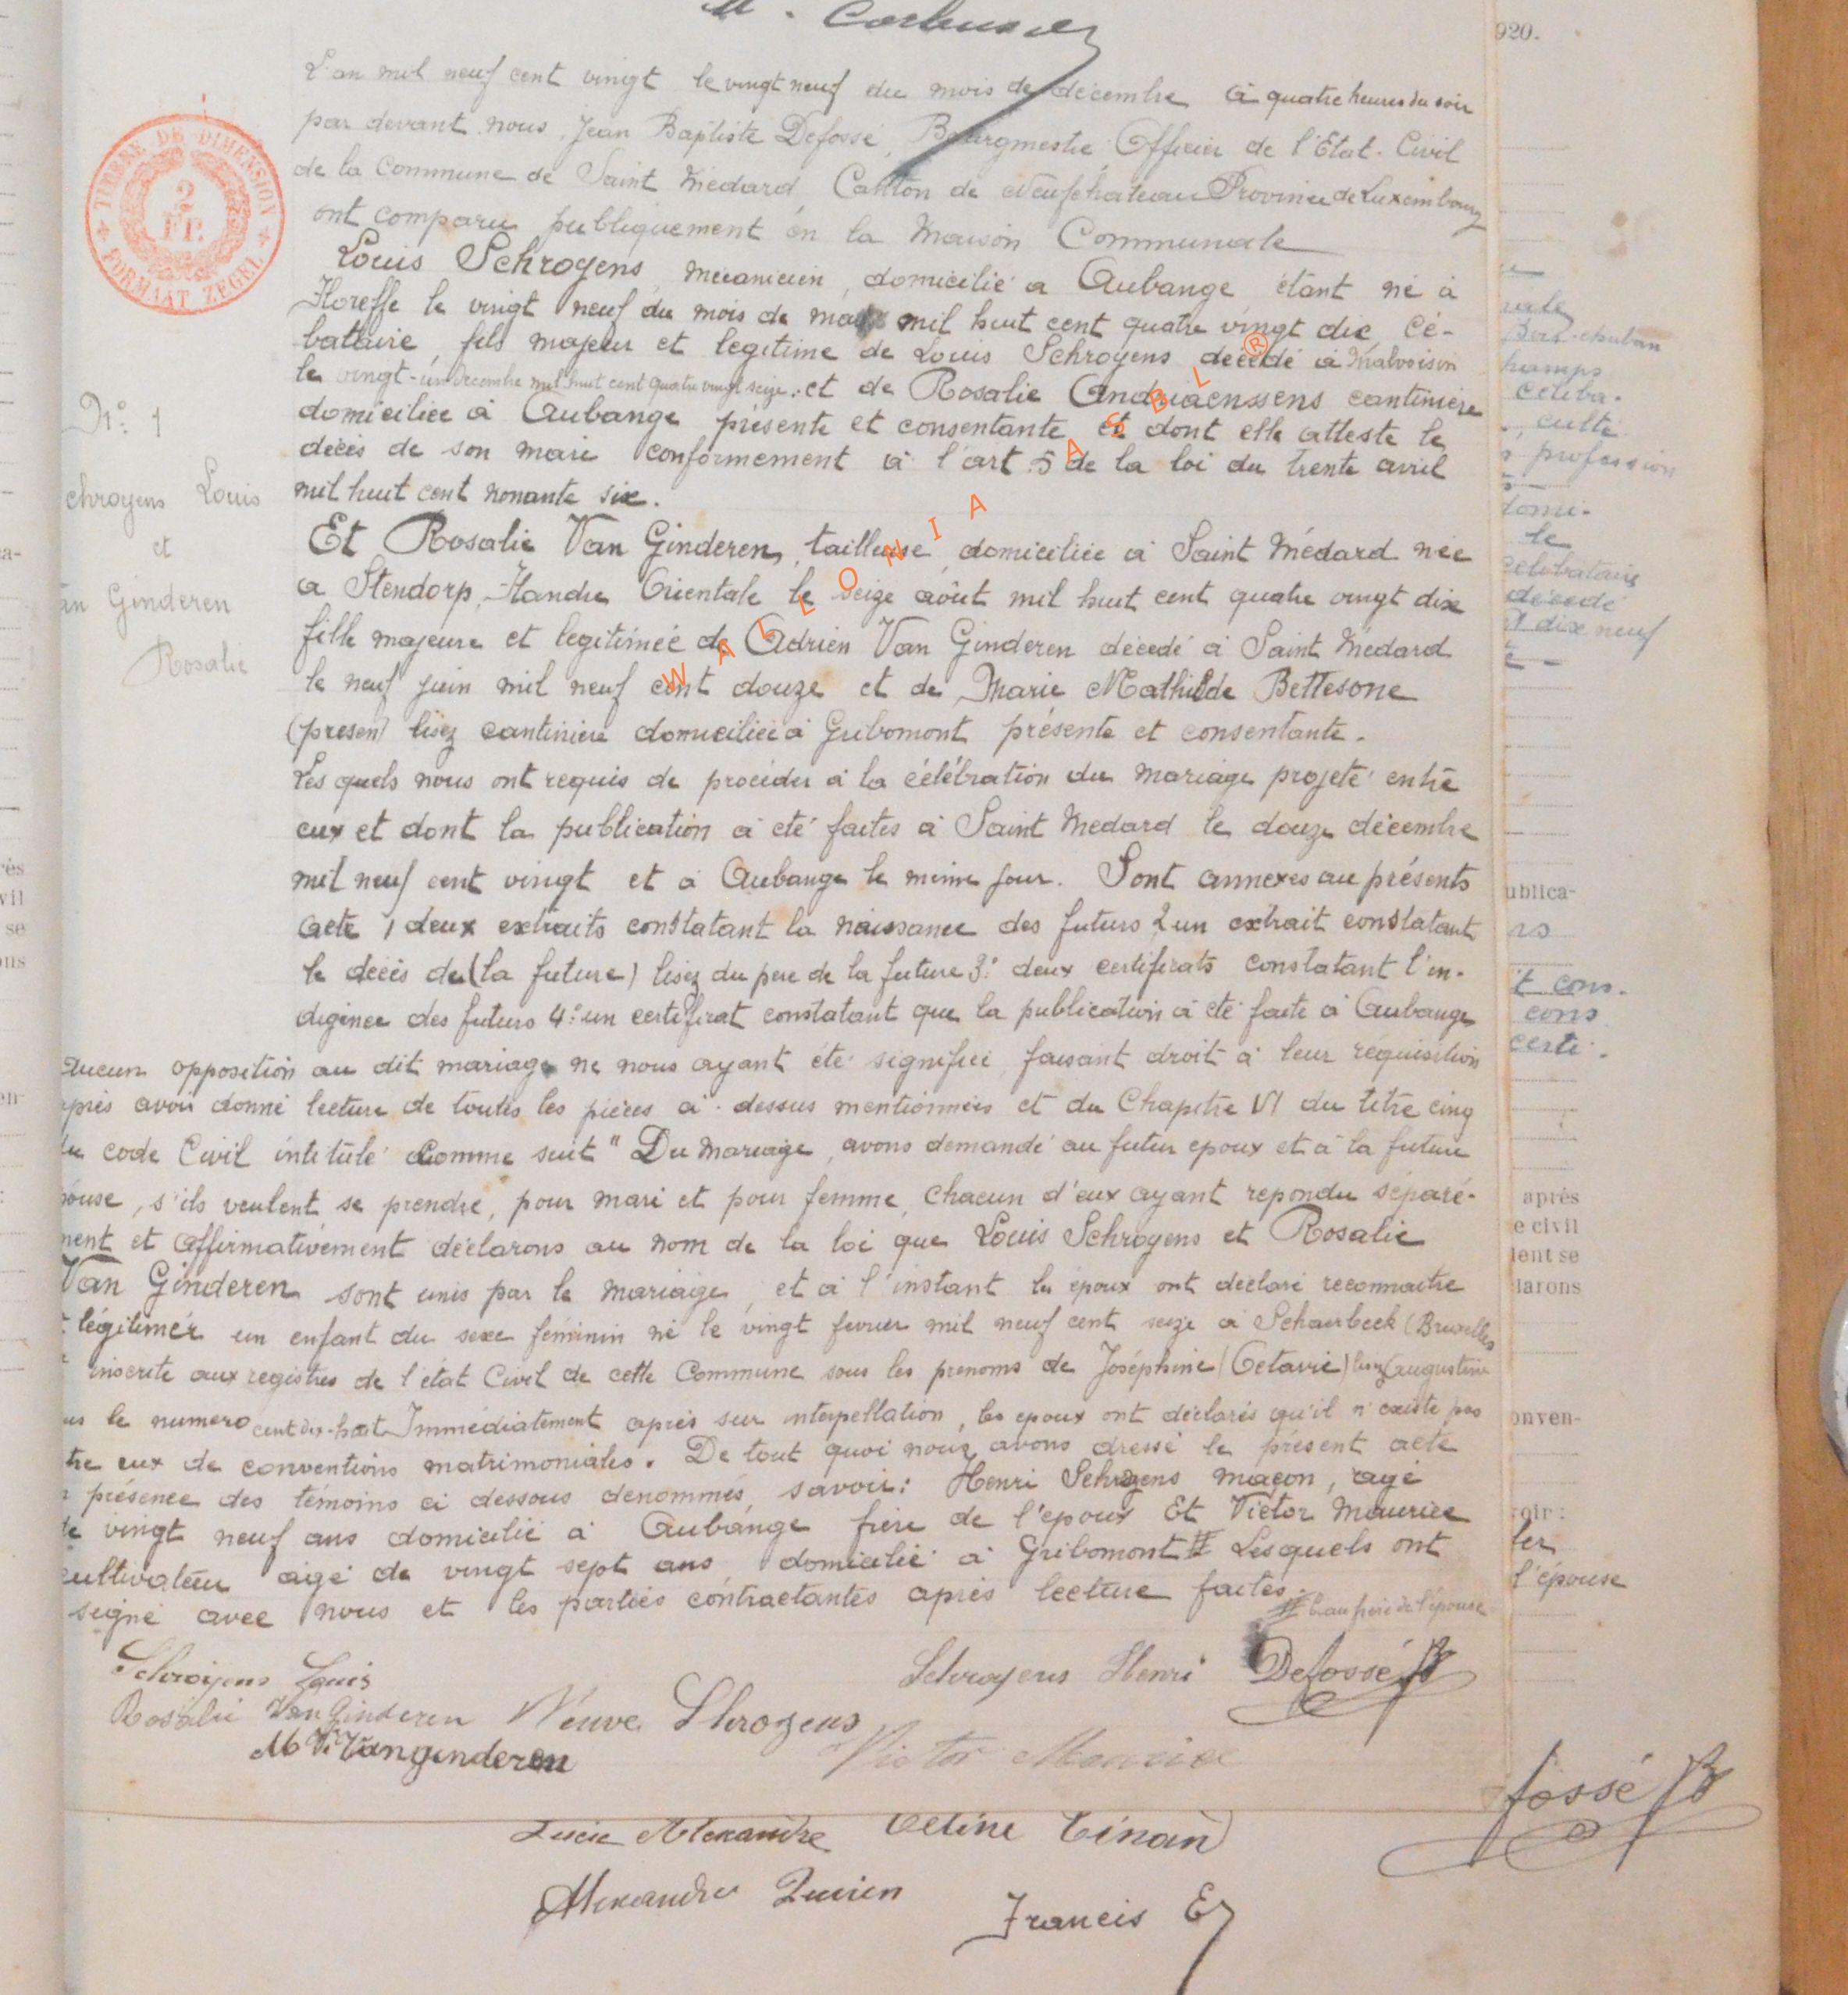 920.
TIMBRE DE DIMENSION
2
FR.
FORMAAT ZEGEL
L'an mil neuf cent vingt le vingt neuf du mois de décembre à quatre heures du soir
par devant nous Jean Baptiste Defossé, Bourgmestre Officier de l'Etat-Civil
de la Commune de Saint Médard, Canton de Neufchateau Province de Luxembourg
ont comparu publiquement en la Maison Communale
Louis Schroyens, mécanicien, domicilié à Aubange étant né à
Floreffe le vingt neuf du mois de mil huit cent quatre vingt dix Cé-
bataire, fils majeur et légitime de Louis Schroyens décédé à Malvoisin
le vingt-un Décembre mil huit cent quatre vingt seize. et de Rosalie Andriaenssens cantinière
domiciliée à Aubange présente et consentante et dont elle atteste le
décès de son mari conformement à l'art. 5 de la loi du trente avril
mil huit cent nonante six.
N° 1
chroyens Louis
et
an Ginderen
Rosalie
Et Rosalie Van Ginderen, tailleuse domiciliée à Saint Médard née
a Stendorp, Flandre Orientale le seize août mil huit cent quatre vingt dix
fille majeure et legitimée de Adrien Van Ginderen décédé à Saint Médard
le neuf juin mil neuf cent douze et de Marie Mathilde Bettesone
(presen) lisez cantinière domiciliée à Gribomont présente et consentante.
Les quels nous ont requis de procéder à la célébration du mariage projeté entre
eux et dont la publication à été faites à Saint Médard le douze décembre
mil neuf cent vingt et à Aubange le même jour. Sont annexes au présents
acte 1 deux extraits constatant la naissance des futurs 2 un extrait constatant
le décès de (la future) lisez du père de la future 3° deux certificats constatant l'in-
digence des futurs 4° un certificat constatant que la publication à été faite à Aubange
Aucun opposition au dit mariage ne nous ayant été signifiée, faisant droit à leur requisition
après avoir donné lecture de toutes les pièces ci-dessus mentionnées et du Chapitre VI du titre cinq
du code Civil intitulé comme suit "Du Mariage, avons demandé au futur epoux et à la future
pouse, s'ils veulent se prendre, pour mari et pour femme, chacun d'eux ayant repondu séparé-
ment et affirmativement déclarons au nom de la loi que Louis Schroyens et Rosalie
Van Ginderen sont unis par le mariage, et à l'instant les époux ont déclaré reconnaitre
légitimér un enfant du sexe féminin né le vingt fevrier mil neuf cent seize à Schaerbeek (Bruxelles
inscrite aux registres de l'état Civil de cette Commune sous les prénoms de Joséphine (Octavie) lisez (augustine
us le numero cent dix-huit Immédiatement après sur interpellation, les époux ont déclarés qu'il n'existe pas
tre eux de conventions matrimoniales. De tout quoi nous avons dressé le présent acte
présence des témoins ci dessous denommés, savoir: Henri Schroyens maçon, agé
de vingt neuf ans domicilié à Aubange frère de l'époux Et Victor Maurice
cultivateur agé de vingt sept ans domicilié à Gribomont # Lesquels ont
signé avec nous et les parties contractantes après lecture faites.
# beau frère de l'épouse
Schroyens Louis
Schroyens Henri
Defossé JB
Rosalie Van Ginderen
Veuve Shroyens
M Vangenderen
Victor Maurice
Lucie Alexandre
Celine Tinan
fossé JB
Alexandre Lucien
Francis E
Bois-chuban
hamps
celiba-
culte
profession
domi-
le
celibataire
décédé
dix neuf
ublica-
t cons-
cons
certi-
après
e civil
lent se
larons
onven-
voir:
ler
l'épouse
WALLONIA ASBL ®